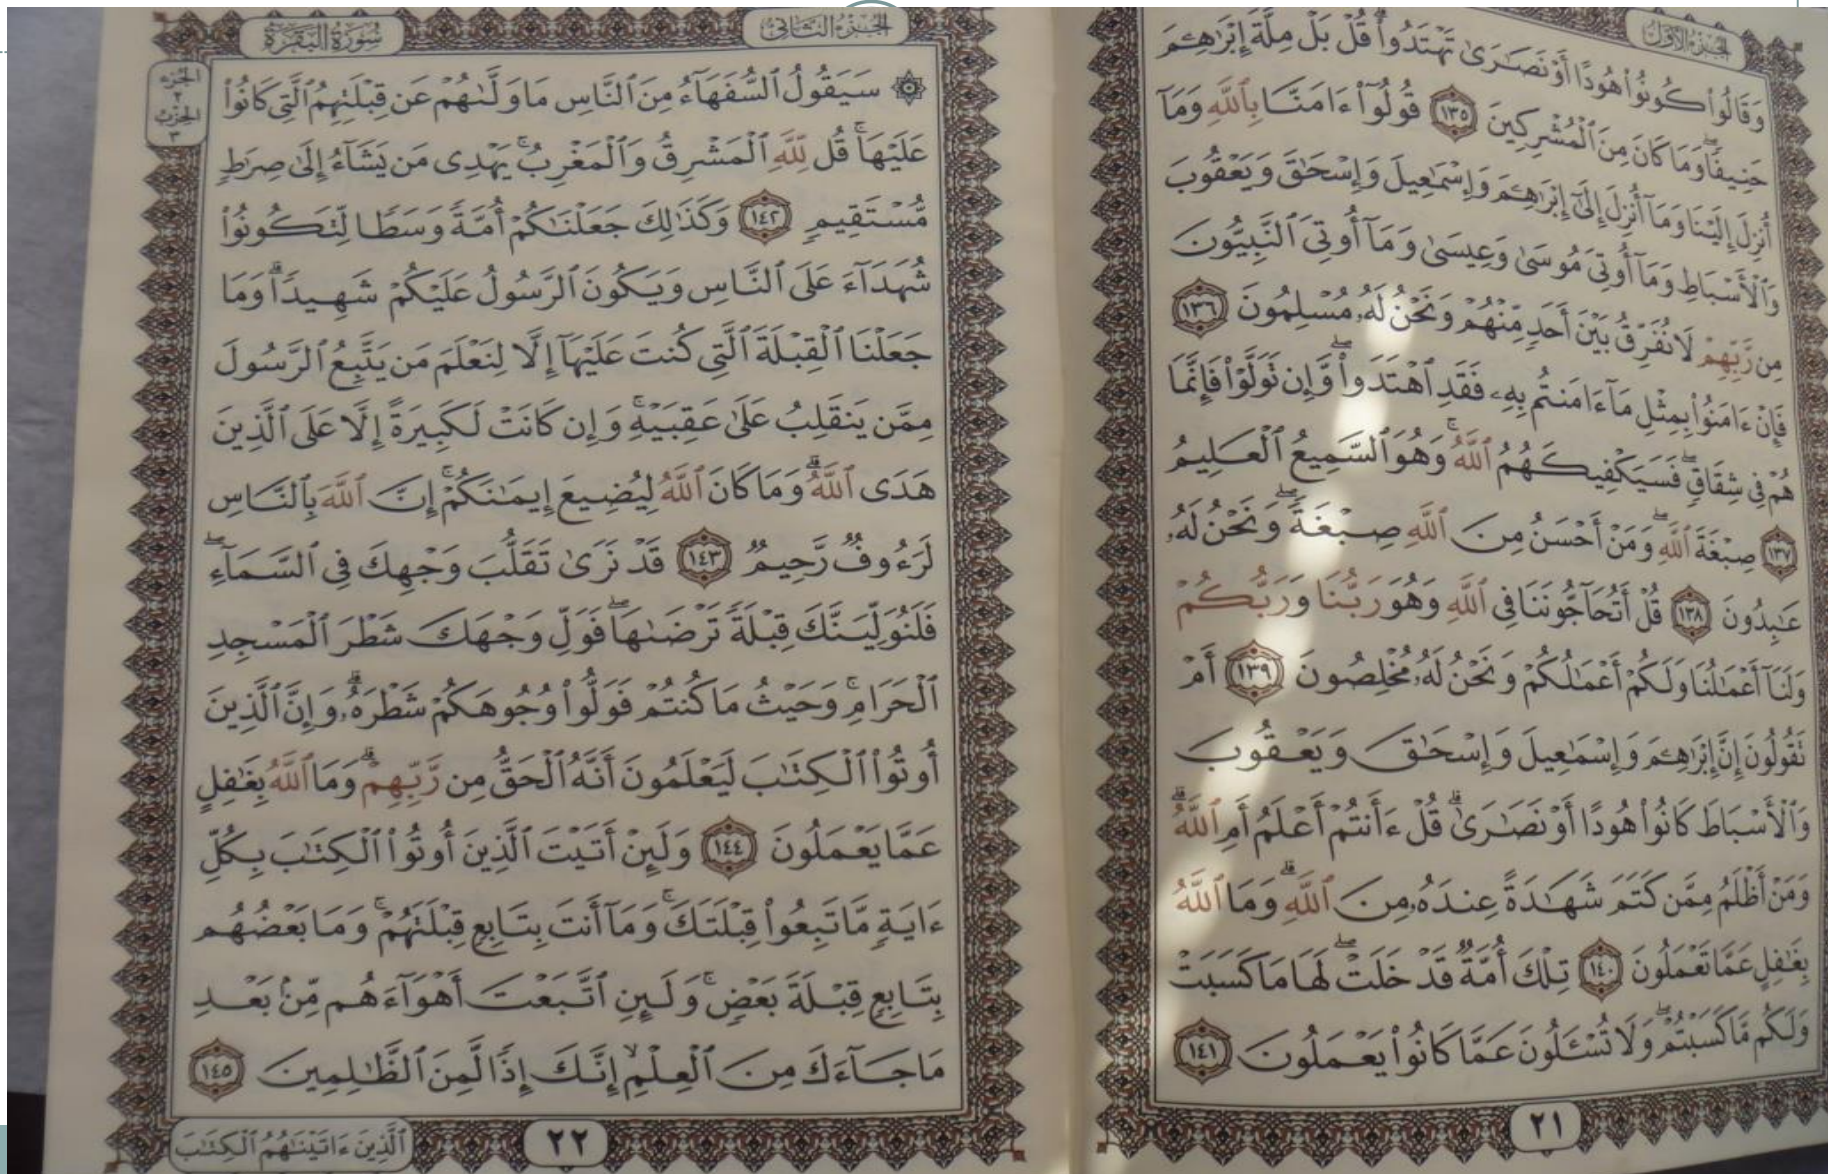 الجزء الأول
وَقَالُوا۟ كُونُوا۟ هُودًا أَوْ نَصَـٰرَىٰ تَهْتَدُوا۟ ۗ قُلْ بَلْ مِلَّةَ إِبْرَٰهِـۧمَ
حَنِيفًا ۖ وَمَا كَانَ مِنَ ٱلْمُشْرِكِينَ ١٣٥ قُولُوٓا۟ ءَامَنَّا بِٱللَّهِ وَمَآ
أُنزِلَ إِلَيْنَا وَمَآ أُنزِلَ إِلَىٰٓ إِبْرَٰهِـۧمَ وَإِسْمَـٰعِيلَ وَإِسْحَـٰقَ وَيَعْقُوبَ
وَٱلْأَسْبَاطِ وَمَآ أُوتِىَ مُوسَىٰ وَعِيسَىٰ وَمَآ أُوتِىَ ٱلنَّبِيُّونَ
مِن رَّبِّهِمْ لَا نُفَرِّقُ بَيْنَ أَحَدٍ مِّنْهُمْ وَنَحْنُ لَهُۥ مُسْلِمُونَ ١٣٦
فَإِنْ ءَامَنُوا۟ بِمِثْلِ مَآ ءَامَنتُم بِهِۦ فَقَدِ ٱهْتَدَوا۟ ۖ وَّإِن تَوَلَّوْا۟ فَإِنَّمَا
هُمْ فِى شِقَاقٍ ۖ فَسَيَكْفِيكَهُمُ ٱللَّهُ ۚ وَهُوَ ٱلسَّمِيعُ ٱلْعَلِيمُ
١٣٧ صِبْغَةَ ٱللَّهِ ۖ وَمَنْ أَحْسَنُ مِنَ ٱللَّهِ صِبْغَةً ۖ وَنَحْنُ لَهُۥ
عَـٰبِدُونَ ١٣٨ قُلْ أَتُحَآجُّونَنَا فِى ٱللَّهِ وَهُوَ رَبُّنَا وَرَبُّكُمْ
وَلَنَآ أَعْمَـٰلُنَا وَلَكُمْ أَعْمَـٰلُكُمْ وَنَحْنُ لَهُۥ مُخْلِصُونَ ١٣٩ أَمْ
تَقُولُونَ إِنَّ إِبْرَٰهِـۧمَ وَإِسْمَـٰعِيلَ وَإِسْحَـٰقَ وَيَعْقُوبَ
وَٱلْأَسْبَاطَ كَانُوا۟ هُودًا أَوْ نَصَـٰرَىٰ ۗ قُلْ ءَأَنتُمْ أَعْلَمُ أَمِ ٱللَّهُ ۗ
وَمَنْ أَظْلَمُ مِمَّن كَتَمَ شَهَـٰدَةً عِندَهُۥ مِنَ ٱللَّهِ ۗ وَمَا ٱللَّهُ
بِغَـٰفِلٍ عَمَّا تَعْمَلُونَ ١٤٠ تِلْكَ أُمَّةٌ قَدْ خَلَتْ ۖ لَهَا مَا كَسَبَتْ
وَلَكُم مَّا كَسَبْتُمْ ۖ وَلَا تُسْـَٔلُونَ عَمَّا كَانُوا۟ يَعْمَلُونَ ١٤١
٢١
الجزء الثاني
سورة البقرة
الجزء
٢
الحزب
٣
۞ سَيَقُولُ ٱلسُّفَهَآءُ مِنَ ٱلنَّاسِ مَا وَلَّىٰهُمْ عَن قِبْلَتِهِمُ ٱلَّتِى كَانُوا۟
عَلَيْهَا ۚ قُل لِّلَّهِ ٱلْمَشْرِقُ وَٱلْمَغْرِبُ ۚ يَهْدِى مَن يَشَآءُ إِلَىٰ صِرَٰطٍ
مُّسْتَقِيمٍ ١٤٢ وَكَذَٰلِكَ جَعَلْنَـٰكُمْ أُمَّةً وَسَطًا لِّتَكُونُوا۟
شُهَدَآءَ عَلَى ٱلنَّاسِ وَيَكُونَ ٱلرَّسُولُ عَلَيْكُمْ شَهِيدًا ۗ وَمَا
جَعَلْنَا ٱلْقِبْلَةَ ٱلَّتِى كُنتَ عَلَيْهَآ إِلَّا لِنَعْلَمَ مَن يَتَّبِعُ ٱلرَّسُولَ
مِمَّن يَنقَلِبُ عَلَىٰ عَقِبَيْهِ ۚ وَإِن كَانَتْ لَكَبِيرَةً إِلَّا عَلَى ٱلَّذِينَ
هَدَى ٱللَّهُ ۗ وَمَا كَانَ ٱللَّهُ لِيُضِيعَ إِيمَـٰنَكُمْ ۚ إِنَّ ٱللَّهَ بِٱلنَّاسِ
لَرَءُوفٌ رَّحِيمٌ ١٤٣ قَدْ نَرَىٰ تَقَلُّبَ وَجْهِكَ فِى ٱلسَّمَآءِ ۖ
فَلَنُوَلِّيَنَّكَ قِبْلَةً تَرْضَىٰهَا ۚ فَوَلِّ وَجْهَكَ شَطْرَ ٱلْمَسْجِدِ
ٱلْحَرَامِ ۚ وَحَيْثُ مَا كُنتُمْ فَوَلُّوا۟ وُجُوهَكُمْ شَطْرَهُۥ ۗ وَإِنَّ ٱلَّذِينَ
أُوتُوا۟ ٱلْكِتَـٰبَ لَيَعْلَمُونَ أَنَّهُ ٱلْحَقُّ مِن رَّبِّهِمْ ۗ وَمَا ٱللَّهُ بِغَـٰفِلٍ
عَمَّا يَعْمَلُونَ ١٤٤ وَلَئِنْ أَتَيْتَ ٱلَّذِينَ أُوتُوا۟ ٱلْكِتَـٰبَ بِكُلِّ
ءَايَةٍ مَّا تَبِعُوا۟ قِبْلَتَكَ ۚ وَمَآ أَنتَ بِتَابِعٍ قِبْلَتَهُمْ ۚ وَمَا بَعْضُهُم
بِتَابِعٍ قِبْلَةَ بَعْضٍ ۚ وَلَئِنِ ٱتَّبَعْتَ أَهْوَآءَهُم مِّنۢ بَعْدِ
مَا جَآءَكَ مِنَ ٱلْعِلْمِ ۙ إِنَّكَ إِذًا لَّمِنَ ٱلظَّـٰلِمِينَ ١٤٥
٢٢
ٱلَّذِينَ ءَاتَيْنَـٰهُمُ ٱلْكِتَـٰبَ